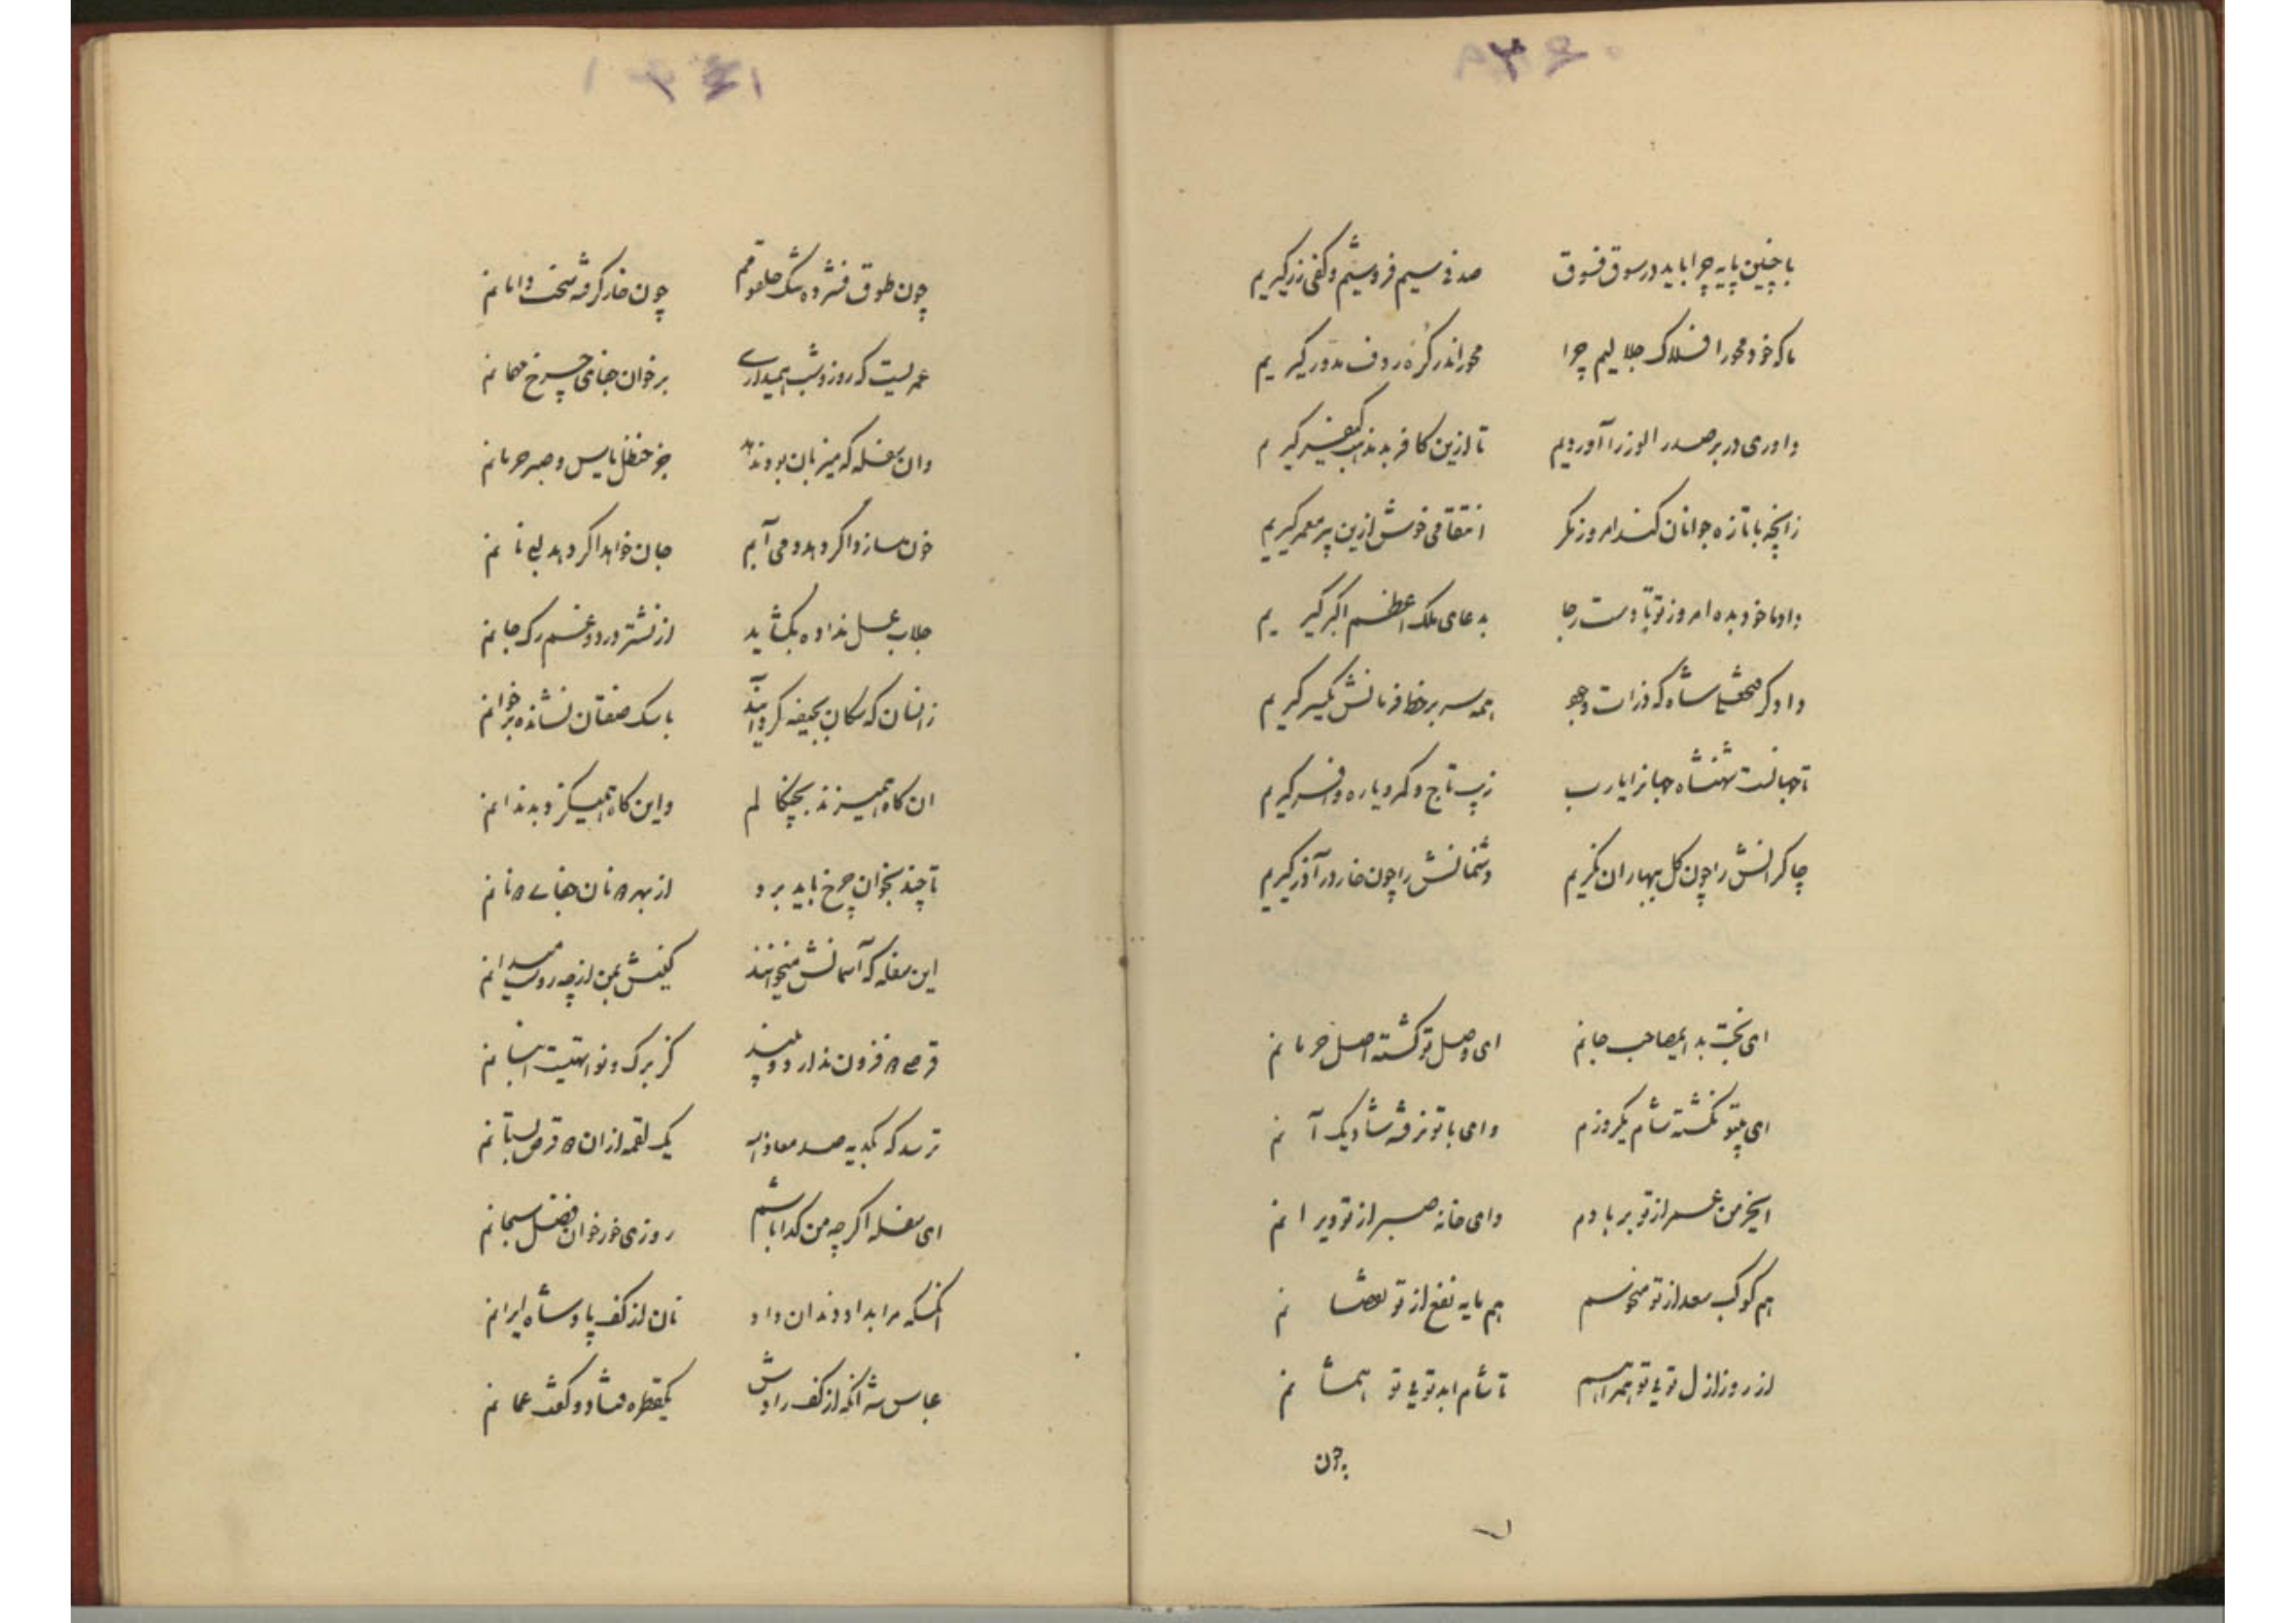 ۳۶۰
با چنین پایه چرا باید در سوق فسوق صدفی سیم فروشیم و کفی زر گیریم
ما که خود محور افلاک جلالیم چرا محور اندر کره روف مدور گیریم
داوری در بر صدر الوزرا آوردیم تا ازین کافر بد مذهب کیفر گیریم
زانچه با تازه جوانان کند امروز مگر انتقامی خوش ازین پیر معمر گیریم
داد ما خود بده امروز تو تا دست رجا بدعای ملک اعظم اکبر گیریم
دادگر شاه که ذرات وجود همه سر بر خط فرمانش یکسر گیریم
تا جهانست شهنشاه جهانرا یارب زیب تاج و کمر و یاره و افسر گیریم
چاکرانش را چون گل ببهاران نگریم دشمنانش را چون خار در آذر گیریم
ای بخت بد ای مصاحب جانم ای وصل تو گشته اصل حرمانم
ای بیتو نگشته شام یکروزم وای با تو نرفته شاد یک آنم
ای خرمن عمر از تو بر بادم وای خانه صبر از تو ویرانم
هم کوکب سعد از تو منحوسم هم مایه نفع از تو نقصانم
از روز ازل توئی تو همراهم تا شام ابد توئی تو همشانم
چون
۳۶۱
چون طوق فشرده تنگ حلقومم چون خار گرفته سخت دامانم
عمریست که روز و شب همیداری بر خوان جفای چرخ مهمانم
وان سفله که میزبان بود ندهد جز حنظل یاس و صبر حرمانم
خون سازد اگر دهد دمی آبم جان خواهد اگر دهد لبی نانم
جلاب عسل نداده بگشاید از نشتر درد و غم رگ جانم
زانسان که سگان بجیفه گرد آیند با سگ صفتان نشانده بر خوانم
ان گاه همیزند بچنگالم واین گاه همیگزد بدندانم
تا چند بخوان چرخ باید برد از بهر دو نان جفای دونانم
این سفله که آسمانش میخوانند کینش بمن از چه روست میدانم
قرصی دو فزون ندارد و بیند کز برگ و نوا تهیست انبانم
ترسد که بکدیه صد معاذ الله یک لقمه از ان دو قرص بستانم
ای سفله اگرچه من گدا باشم روزی خور خوان فضل سبحانم
آنکسکه مرا بداد دندان داد نان از کف پادشاه ایرانم
عباس شه آنکه از کف رادش یکقطره فتاد و گفت عمانم